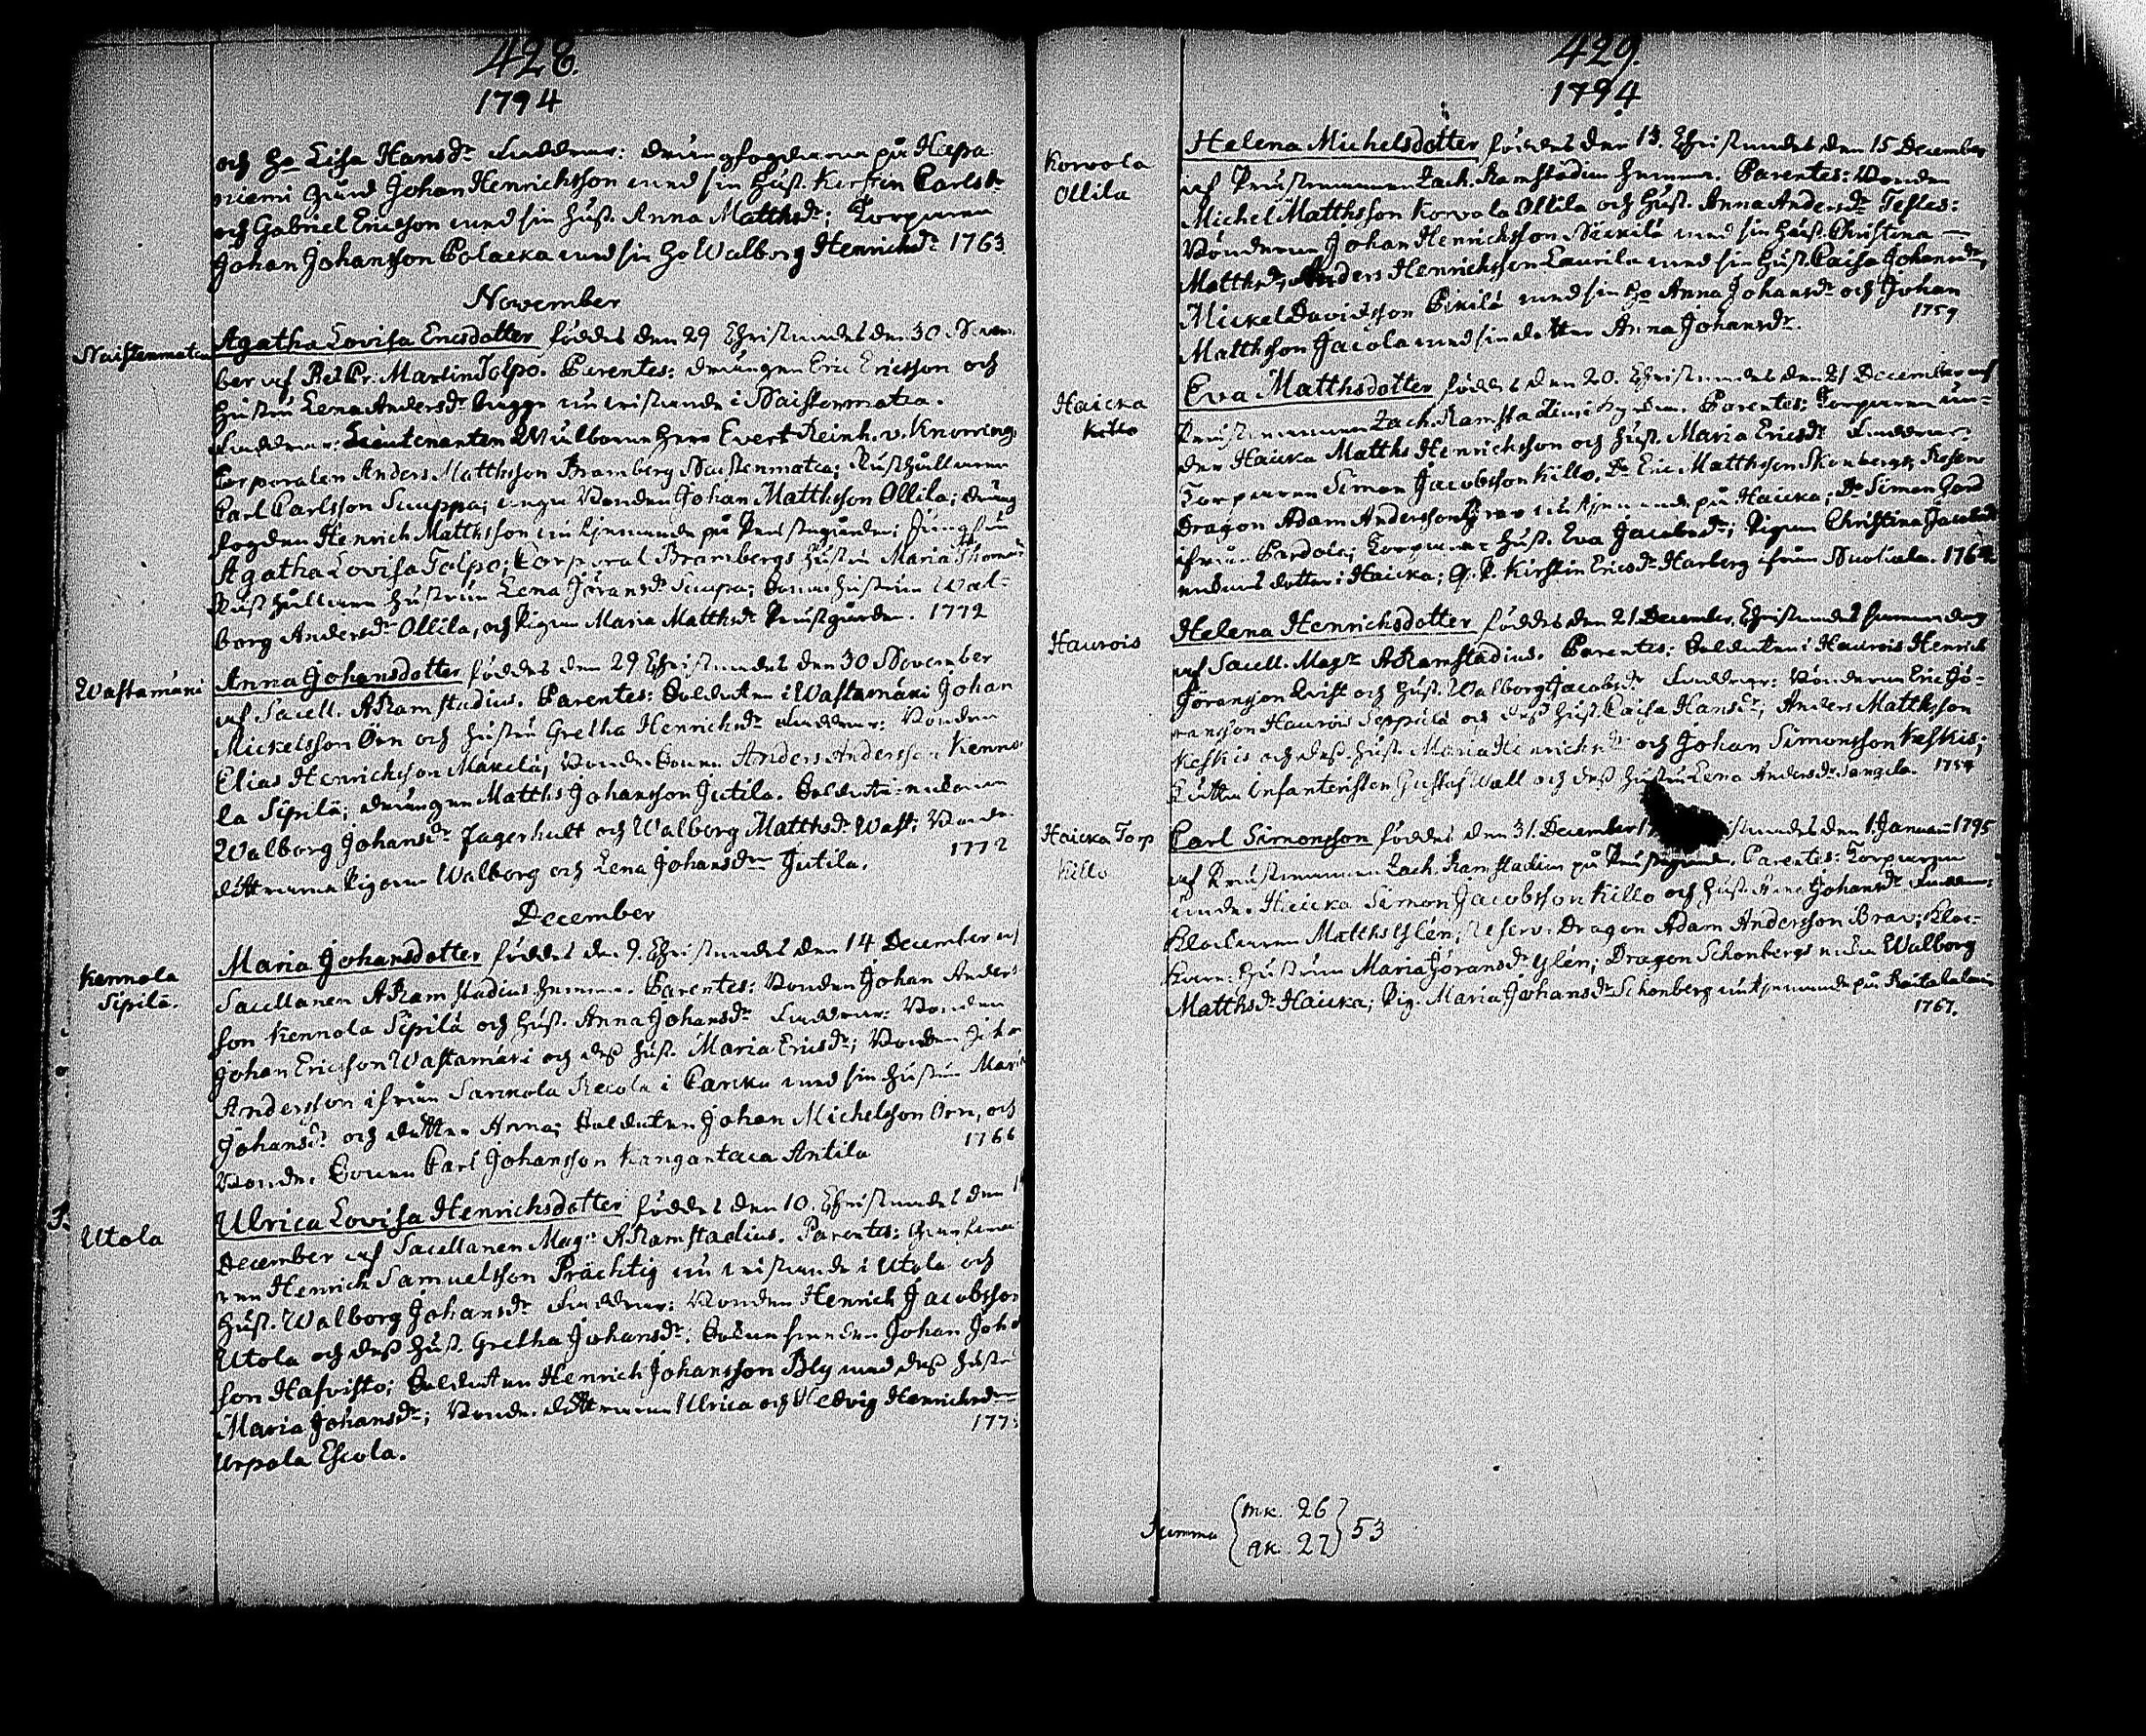 428.
1794
och h:o Lisa Hansdr Faddrar: drängfogdarne på Hepa
niemi gård Johan Henrichsson med sin hust. Kirstin Carlsdr
och Gabriel Ericsson med sin hust. Anna Matthsdr; Torparen
Johan Johansson Polacka med sin h:o Walborg Henrichsdr 1763
November
Naistenmatca
Agatha Lovisa Ericsdotter föddes den 29 Christnades den 30 Novem
ber af Reg. Pr. Martin Tolpo. Parentes: drängen Eric Ericsson och
hustru Lena Andersdr bägge nu vistande i Naistenmatca.
Faddrar: Lieutenanten Wälborne Herr Evert Reinh. v. Knorring,
Corporalen Anders Matthsson Bramberg Naistenmatca; Rusthållaren
Carl Carlsson Sauppa; unga Bonden Johan Matthsson Ollila; dräng
fogden Henrich Matthsson nu tjenande på Prestgården; Jungfru
Agatha Lovisa Tolpo; Corporal Brambergs hustru Maria Thomas
Rusthållare hustrun Lena Jöransdr Sauppa; Bonde hustrun Wal-
borg Andersdr Ollila, och Pigan Maria Matthsdr Prestgården. 1772
Wastamäki
Anna Johansdotter föddes den 29 Christnades den 30 November
af Sacell. A Ramstadius. Parentes: Soldaten i Wastamäki Johan
Mickelsson Örn och hustru Gretha Henrichsdr Faddrar: Bonden
Elias Henrichsson Mäkelä; Bonde Sonen Anders Andersson Kenno
la Sipilä; drängen Matths Johansson Jutila. Soldate enkorne
Walborg Johansdr Jagerhult och Walborg Matthsdr Wast; Bonde
döttrarna Pigorne Walborg och Lena Johansdr Jutila. 1772
December
Kennola
Sipilä.
Maria Johansdotter föddes den 9. Christnades den 14 December af
Sacellanen A Ramstadius hemma. Parentes: Bonden Johan Anders
son Kennola Sipilä och hust. Anna Johansdr Faddrar: Bonden
Johan Ericsson Wastamäki och dess hust. Maria Ericsdr; Bonden Johan
Andersson ifrån Sarkola Recola i Carcku med sin hustru Maria
Johansdr och dotter Anna; Soldaten Johan Michelsson Örn, och
Bonde Sonen Carl Johansson Kangantaca Antila 1766
Utola
Ulrica Lovisa Henrichsdotter föddes den 10. Christnades den 1
December af Sacellanen Mag:r A Ramstadius. Parentes:
ren Henrich Samuelsson Prächtig nu vistande i Utola och
hust. Walborg Johansdr Faddrar: Bonden Henrich Jacobsson
Utola och dess hust. Gretha Johansdr; Johan Joh
son Hafvisto; Soldaten Henrich Johansson Bly med dess hustru
Maria Johansdr; Bonde döttrarna Ulrica och Hedvig Henrichsdr
Urpola Escola. 177
429.
1794
Korvola
Ollila
Helena Michelsdotter föddes den 13. Christnades den 15 December
af Prustemannen Zach. Ramstadius hemma. Parentes: Bonden
Michel Matthsson Korvola Ollila och hust. Anna Andersdr Testes:
Bönderne Johan Henrichsson Näckilä med sin hust. Christina
Matthsdr; Anders Henrichsson Laurila med sin hust. Caisa Johansdr,
Mickel Davidsson Pikilä med sin h:o Anna Johansdr och Johan
Matthsson Jacola med sin dotter Anna Johansdr. 1759
Haicka
Killo
Eva Matthsdotter föddes den 20. Christnades den 21 December af
Zach. Ramstadius i Kyrkan. Parentes: Torparen un-
der Haicka Matths Henrichsson och hust. Maria Ericsdr Faddrar:
Torparen Simon Jacobsson Killo, Dr Eric Matthsson Skonberg, Reserv
Dragon Adam Andersson Brav nu tjenande på Haicka; Dr Simon Hard
ifrån Pardola; Torpare hust. Eva Jacobsdr; Pigan Christina Jacobsdr
enkans dotter i Haicka; Q. P. Kirstin Ericsdr Harberg ifrån Nuokala. 1764
Haurois
Helena Henrichsdotter föddes den 21 December, Christnades samma dag
af Sacell. Mag:r A Ramstadius. Parentes: Soldaten i Haurois Henrich
Jöransson Qvist och hust. Walborg Jacobsdr Faddrar: Bönderne Eric Jö-
ransson Haurois Seppälä och dess hust. Caisa Hansdr; Anders Matthsson
Keskis och dess hust. Maria Henrichsdr och Johan Simonsson Keskis;
Lätta Infanteristen Gustaf Wall och dess hustru Lena Andersdr Sangola. 1754
Haicka Torp
Killo
Carl Simonsson föddes den 31. December 1 istnades den 1 Januarii 1795
af Zach. Ramstadius på Prestgården. Parentes: Torparen
under Haicka Simon Jacobsson Killo och hust. Anna Johansdr Faddrar:
Klockaren Matths Glén; Reserv. Dragon Adam Andersson Brav; Kloc-
kare: Hustrun Maria Jöransdr Glén; Dragon Schonbergs enka Walborg
Matthsdr Haicka; Pig. Maria Johansdr Schonberg nu tjenande på Rautakalmi
1767.
Summa {mk. 26
qk. 27} 53